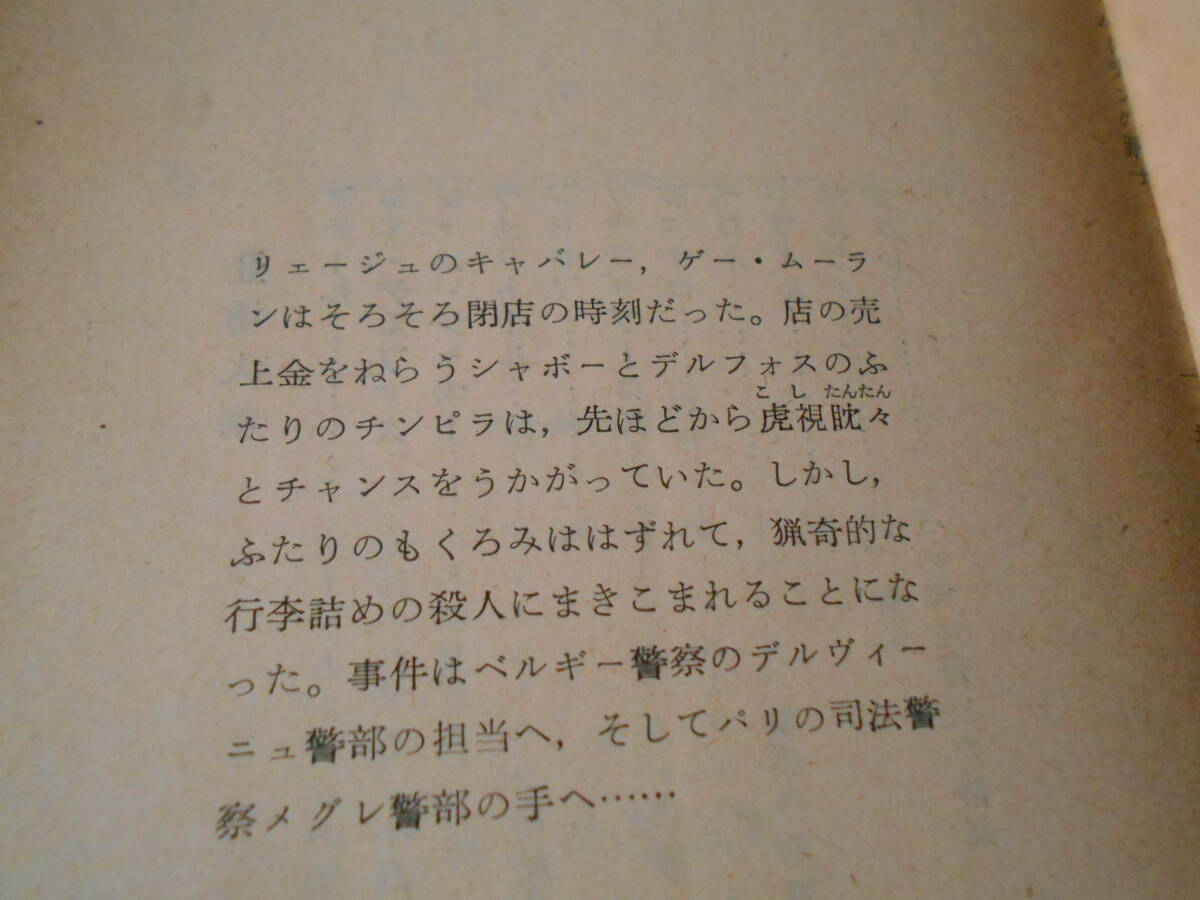 リェージュのキャバレー，ゲー・ムーラ
ンはそろそろ閉店の時刻だった。店の売
上金をねらうシャボーとデルフォスのふ
こしたんたん
たりのチンピラは，先ほどから虎視眈々
とチャンスをうかがっていた。しかし，
ふたりのもくろみははずれて，猟奇的な
行李詰めの殺人にまきこまれることにな
った。事件はベルギー警察のデルヴィー
ニュ警部の担当へ，そしてパリの司法警
察メグレ警部の手へ……